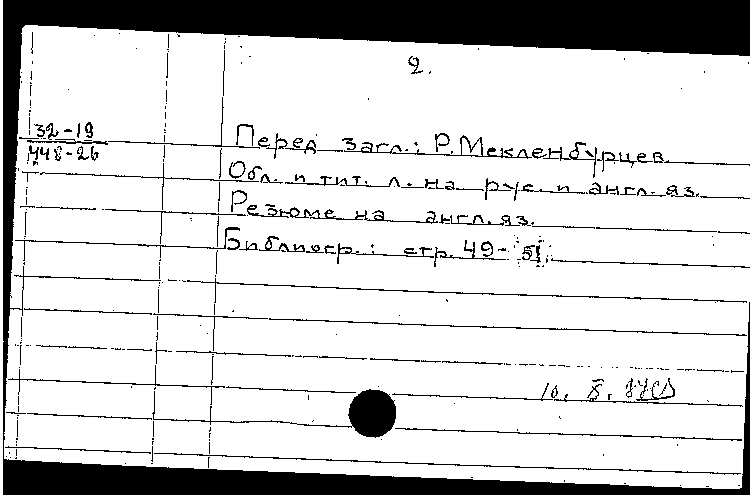 2.
32-19
448-26
Перед загл.: Р. Мекленбурцев.
Обл. и тит. л. на рус. и англ. яз.
Резюме на англ. яз.
Библиогр.: стр. 49-51.